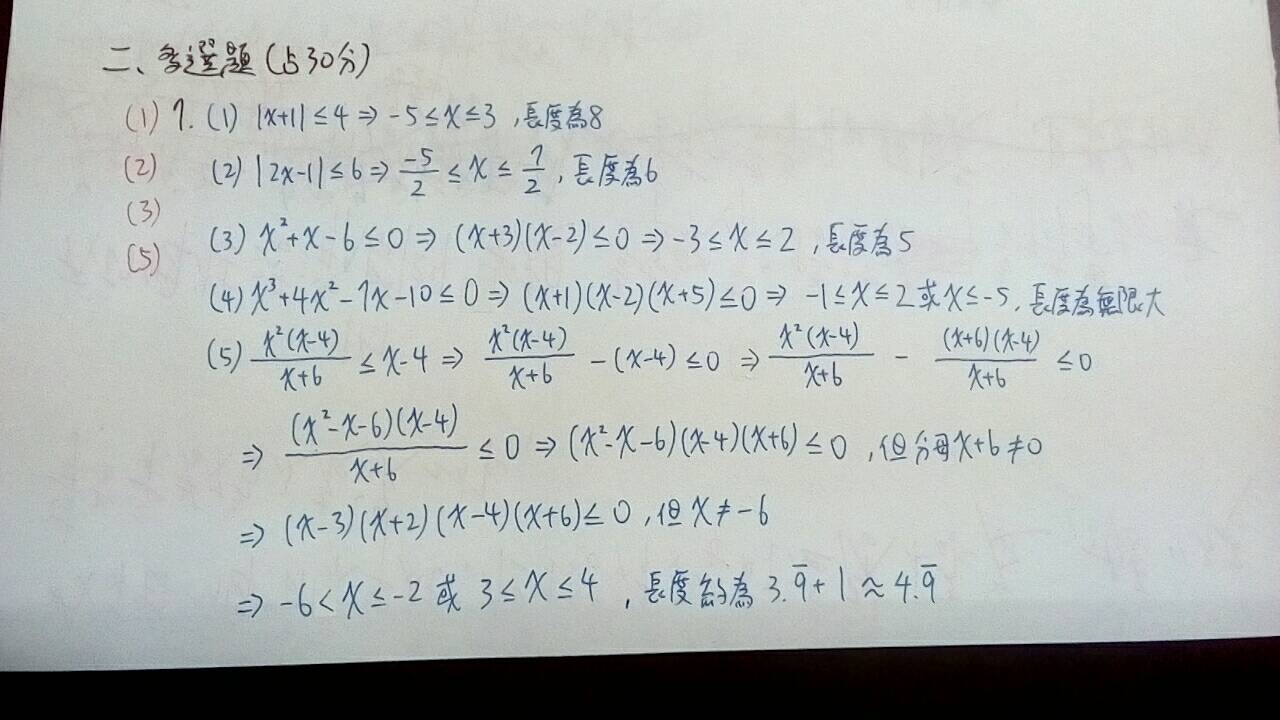 二、多選題(占30分)
(1) 7. (1) |x+1| ≤ 4 ⇒ -5 ≤ x ≤ 3 ,長度為8
(2) (2) |2x-1| ≤ 6 ⇒ \frac{-5}{2} ≤ x ≤ \frac{7}{2} ,長度為6
(3)
(3) x²+x-6 ≤ 0 ⇒ (x+3)(x-2) ≤ 0 ⇒ -3 ≤ x ≤ 2 ,長度為5
(5)
(4) x³+4x²-7x-10 ≤ 0 ⇒ (x+1)(x-2)(x+5) ≤ 0 ⇒ -1 ≤ x ≤ 2 或 x ≤ -5 ,長度為無限大
(5) \frac{x²(x-4)}{x+6} ≤ x-4 ⇒ \frac{x²(x-4)}{x+6} - (x-4) ≤ 0 ⇒ \frac{x²(x-4)}{x+6} - \frac{(x+6)(x-4)}{x+6} ≤ 0
⇒ \frac{(x²-x-6)(x-4)}{x+6} ≤ 0 ⇒ (x²-x-6)(x-4)(x+6) ≤ 0 ,但分母x+6 ≠ 0
⇒ (x-3)(x+2)(x-4)(x+6) ≤ 0 ,但 x ≠ -6
⇒ -6 < x ≤ -2 或 3 ≤ x ≤ 4 ,長度約為 3.9̅+1 ≈ 4.9̅